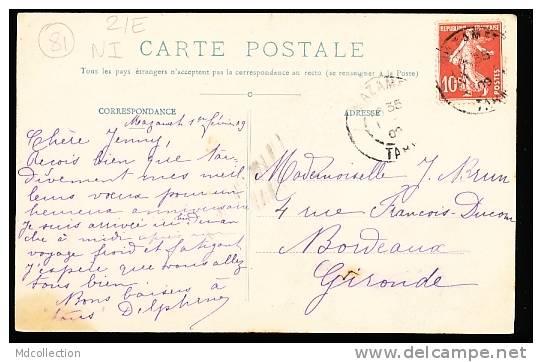 81
21E
NI
CARTE POSTALE
Tous les pays étrangers n'acceptent pas la correspondance au recto (se renseigner à la Poste)
REPUBLIQUE FRANÇAISE
10c
POSTES
CORRESPONDANCE
ADRESSE
TARN
Mazamet 1er février 09
Chère Jenny,
Reçois bien que tar-
divement mes meil-
leurs vœux pour un
heureux anniversaire
Je suis arrivée hier diman-
che à midi après un
voyage froid et fatigant
J'espère que vous allez
tous bien.
Bons baisers à
tous Delphine
Mademoiselle J. Brun
4 rue François-Ducom
Bordeaux
Gironde
mdcollection
http://france.delcampe.net